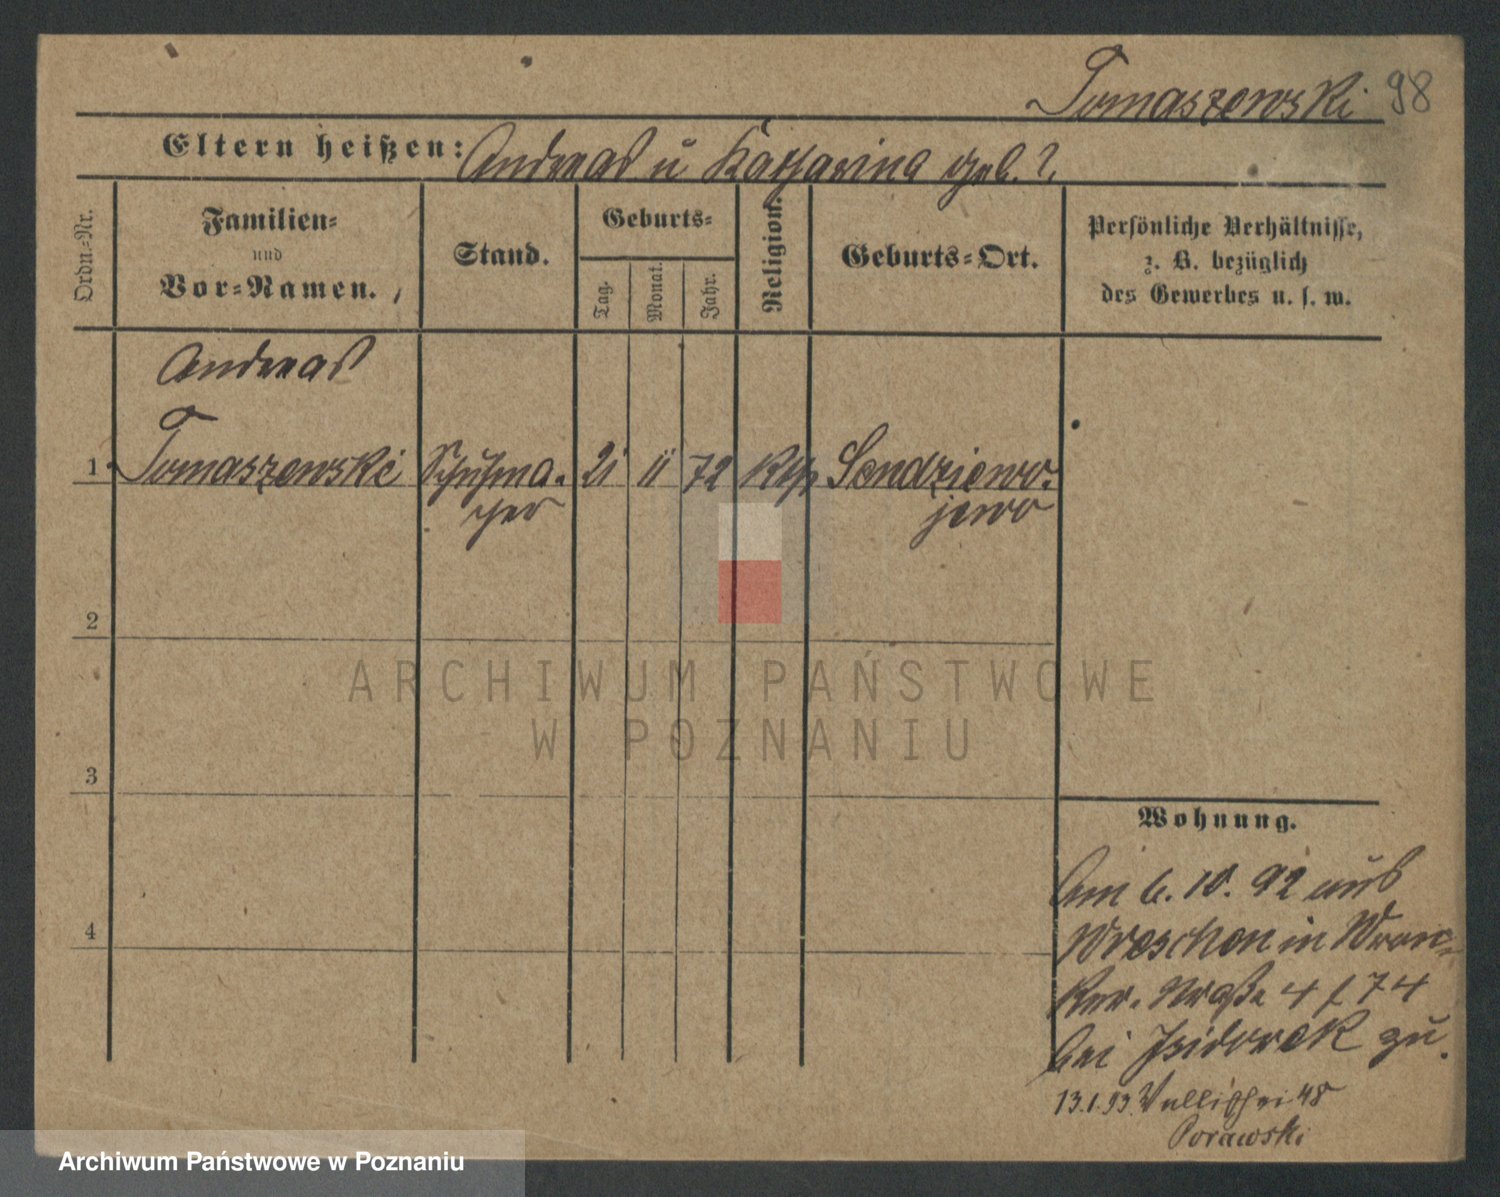 Tomaszewski 98
Eltern heißen: Andreas u Katharina geb. ?.
Ordn.-Nr.
Familien-
und
Vor-Namen.
Stand.
Geburts-
Tag.
Monat.
Jahr.
Religion.
Geburts-Ort.
Persönliche Verhältnisse,
z. B. bezüglich
des Gewerbes u. s. w.
Andreas
1 Tomaszewski Schuhma- 21 11 72 kth Sendziewo-
cher jewo
2
3
4
ARCHIWUM PAŃSTWOWE
W POZNANIU
Wohnung.
Am 6. 10. 92 aus
Wreschen in Wron-
ker. Straße 4 / 74
bei Isidorek zu.
13.1.93. Wallischei 48
Porawski
Archiwum Państwowe w Poznaniu